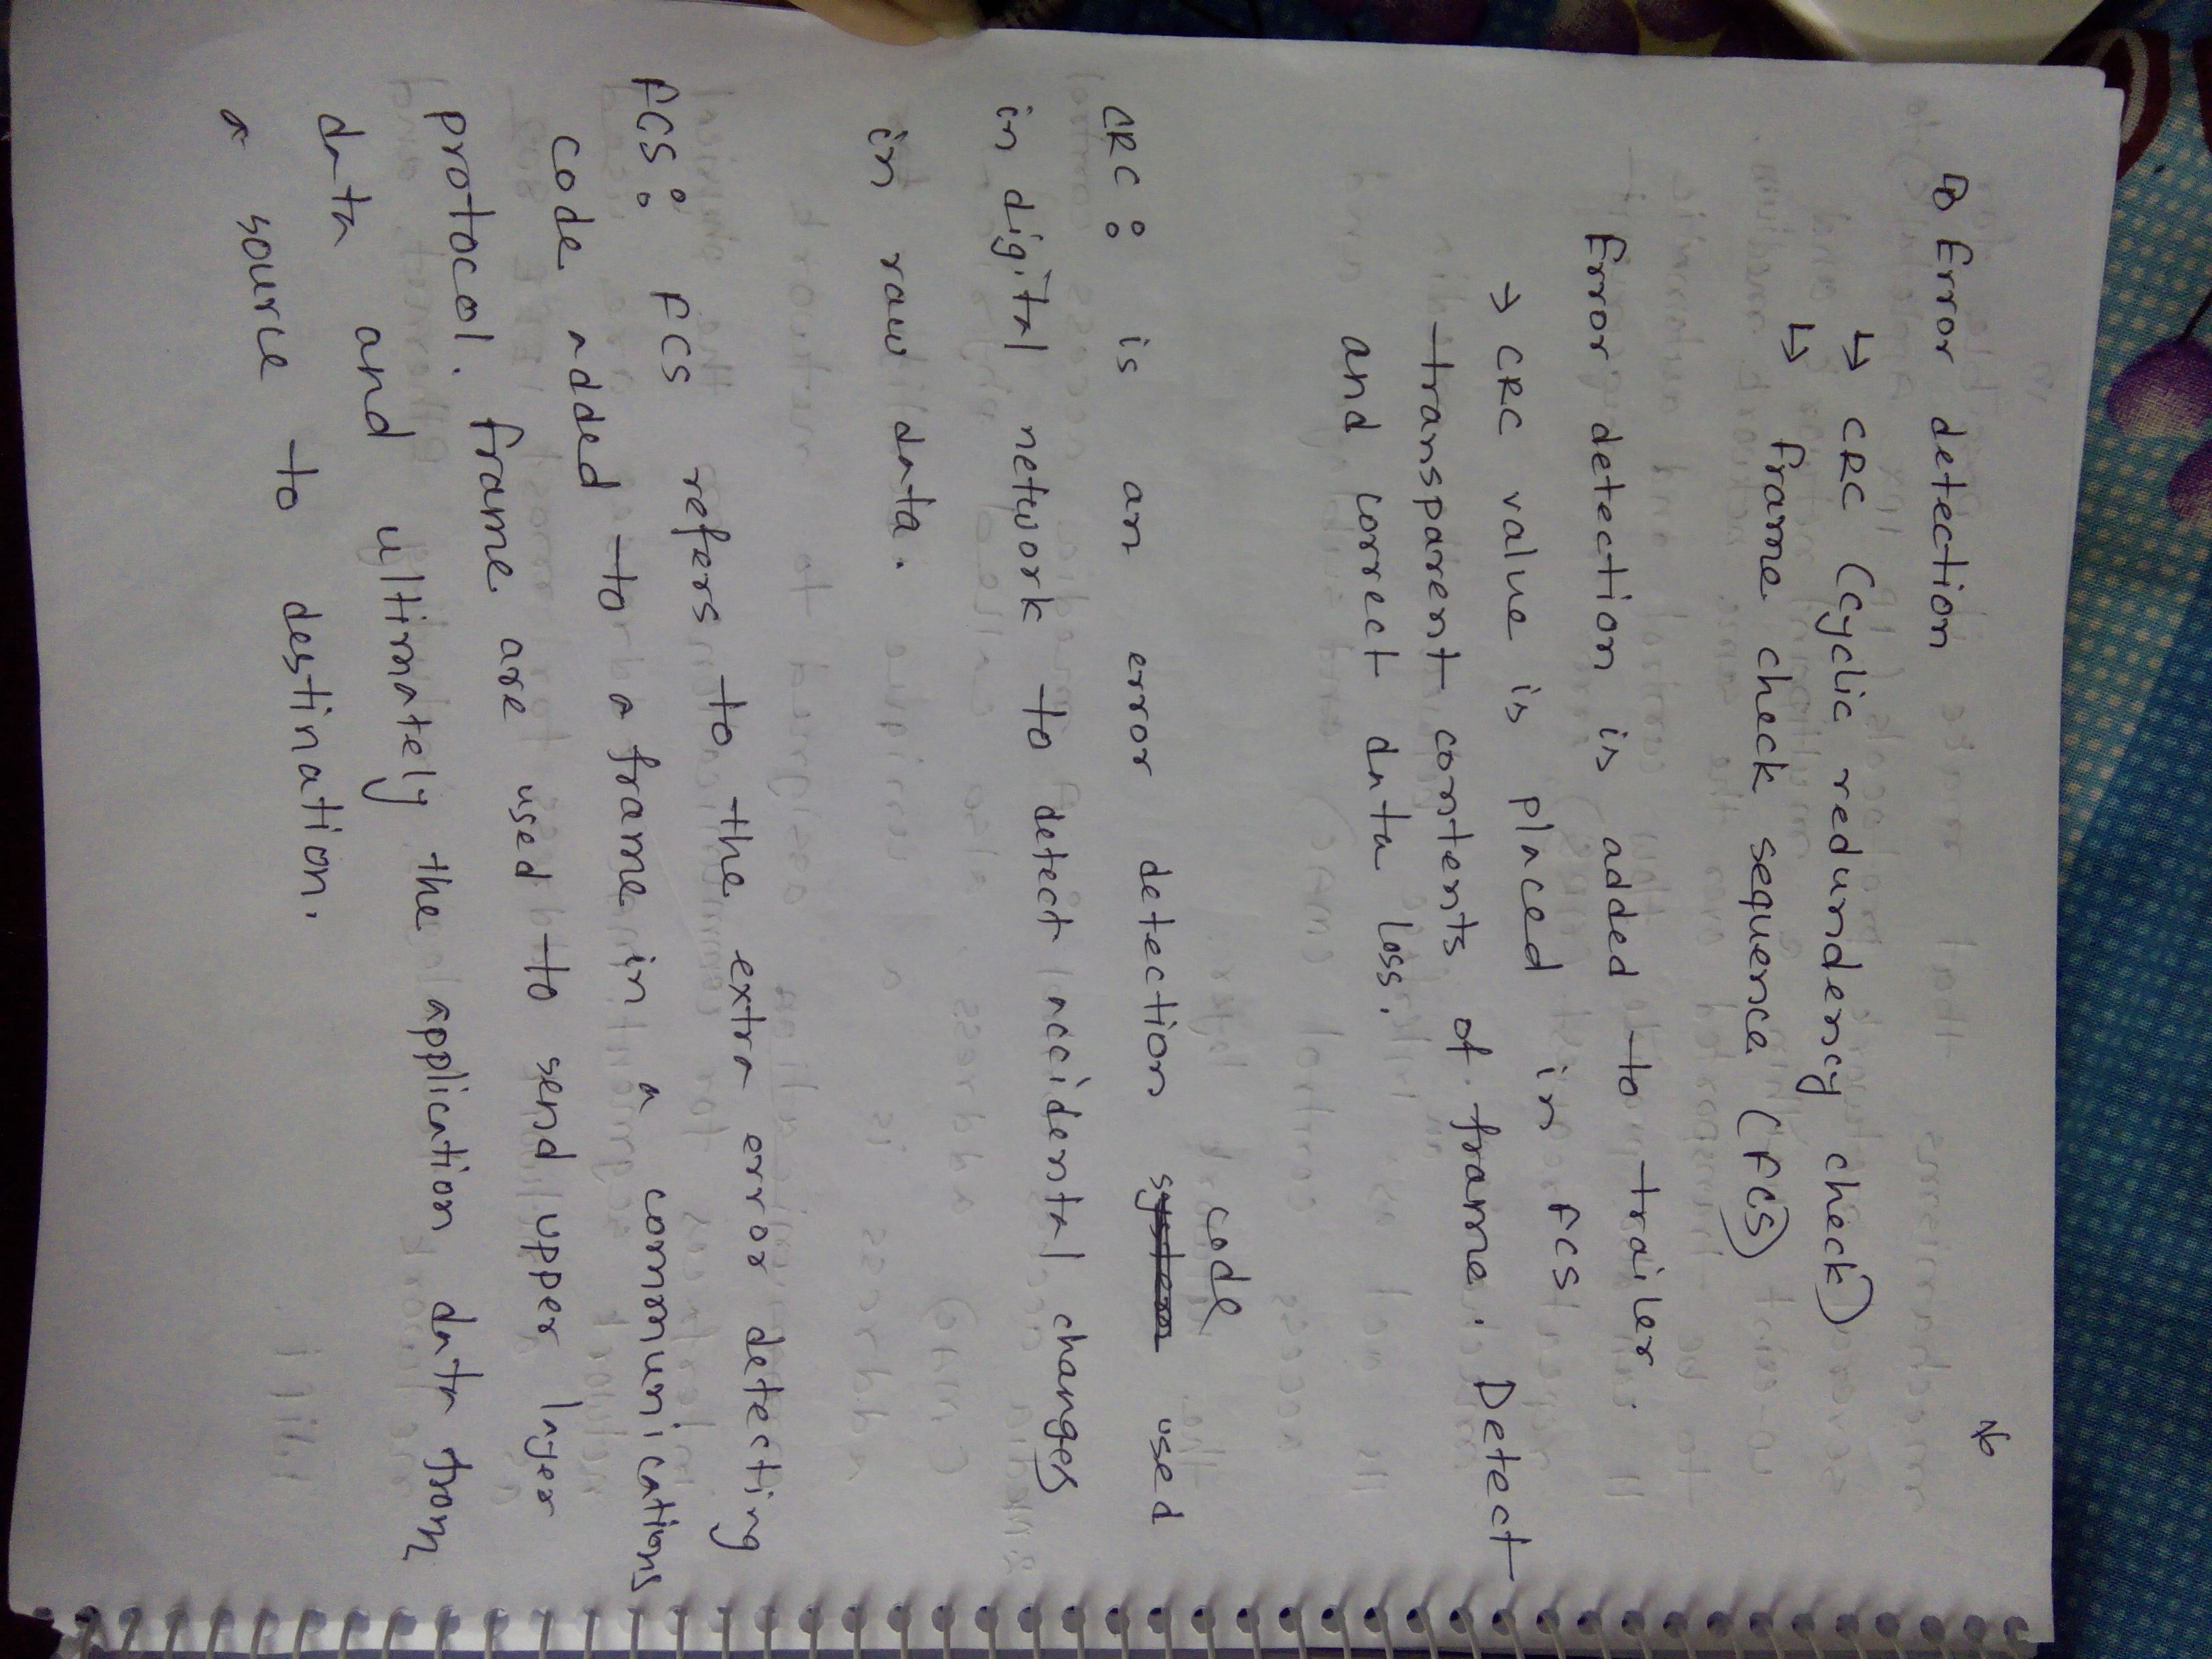 16
D Error detection
↳ CRC (cyclic redundency check)
↳ Frame check sequence (FCS)
Error detection is added to trailer.
→ CRC value is placed in FCS
transparent contents of frame. Detect
and correct data loss.
code
CRC : is an error detection system used
in digital network to detect accidental changes
in raw data.
FCS : FCS refers to the extra error detecting
code added to a frame in a communications
protocol. Frame are used to send upper layer
data and ultimately the application data from
a source to destination.